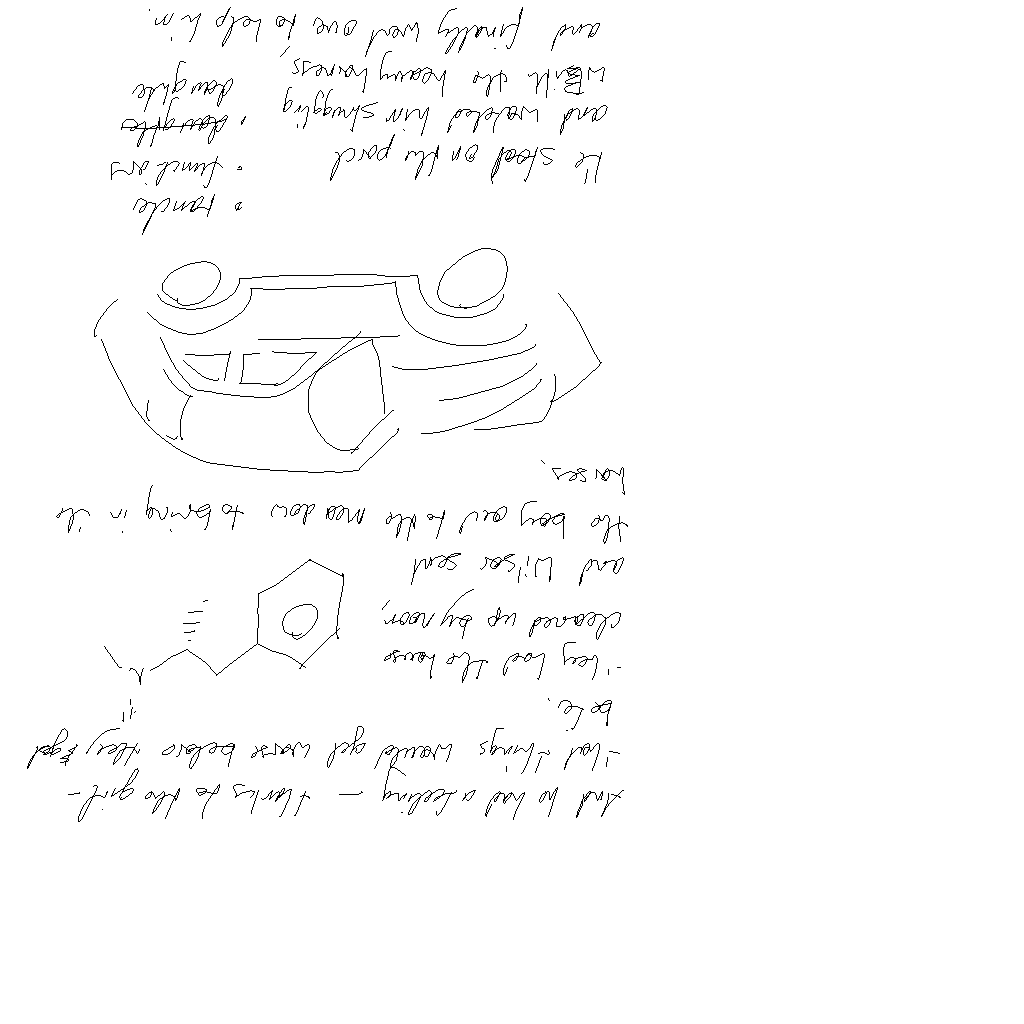 And he had a feeling — thanks to the girl —
that things would get worse before they got
better.
They had the house
cleaned up by noon,
and Wilson sent
the boy out to the meadow to bring in the
horses.
H
N
He stood on the porch
and watched him struggling
with the heavy harness,
and finally went over to help him.
• functions
• daughter
daughter